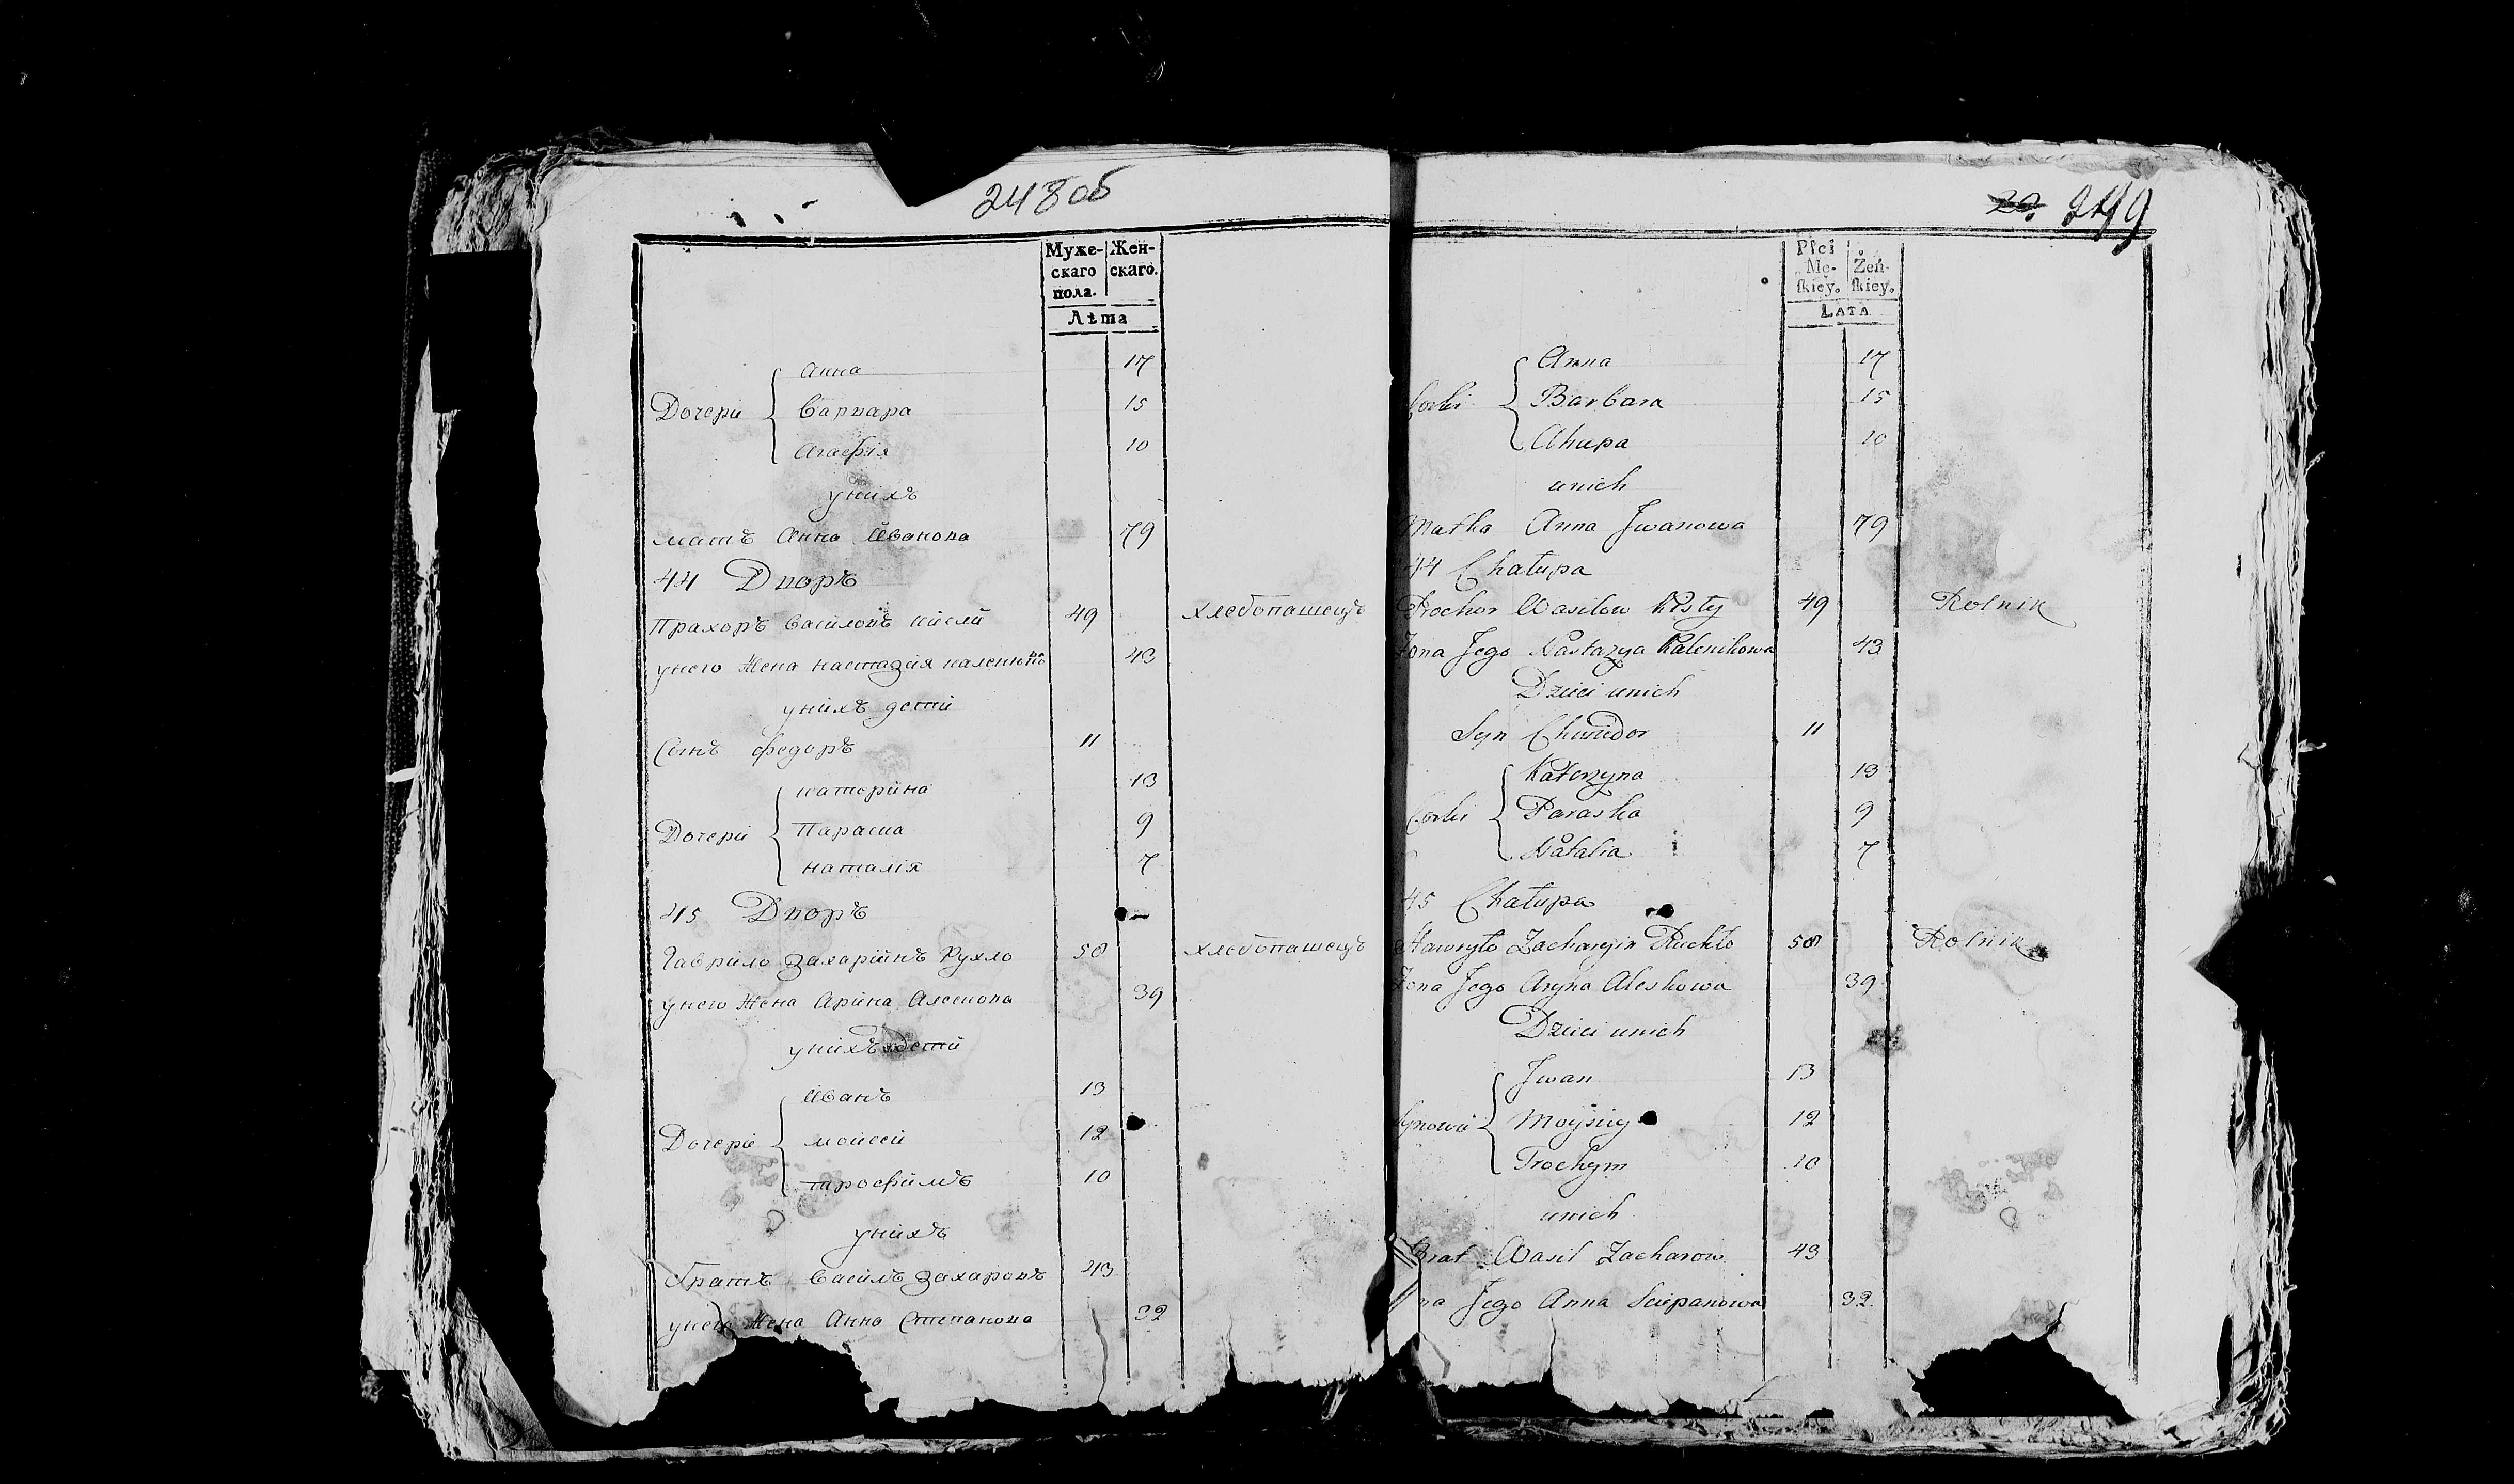 248 об
Муже-
скаго
пола.
Жен-
скаго.
Лѣта
Анна 17
Дочери Варвара 15
Агафiя 10
унихъ
мать Анна Иванова 79
44 Дворъ
Прахоръ Василовъ кислй 49 хлебопашецъ
унего Жена настазия каленикова 43
унихъ дети
Сынъ федоръ 11
катерина 13
Дочери Параска 9
наталiя 7
45 Дворъ
Гаврило Захарiинъ Рухло 50 хлебопашецъ
унего Жена Арина Алескова 39
унихъ дети
Иванъ 13
Дочери моисей 12
трофимъ 10
унихъ
братъ Василъ Захаровъ 43
унего Жена Анна Степанова 32
20. 249
Płci
Mę-
ſkiey.
Żeń-
ſkiey.
LATA
Anna 17
Corki Barbara 15
Ahapa 10
unich
Matka Anna Jwanowa 79
44 Chałupa
Prochor Wasilow 49 Rolnik
Żona Jego Nastazya Kalenikowa 43
Dzieci unich
Syn Chwiedor 11
Katerzyna 13
Corki Paraska 9
Natalia 7
45 Chałupa
Hawryło Zacharyin Ruchło 50 Rolnik
Żona Jego Aryna Aleskowa 39
Dzieci unich
Jwan 13
Synowie Moysiey 12
Trochym 10
unich
Brat Wasil Zacharow 43
na Jego Anna Sciepanowa 32